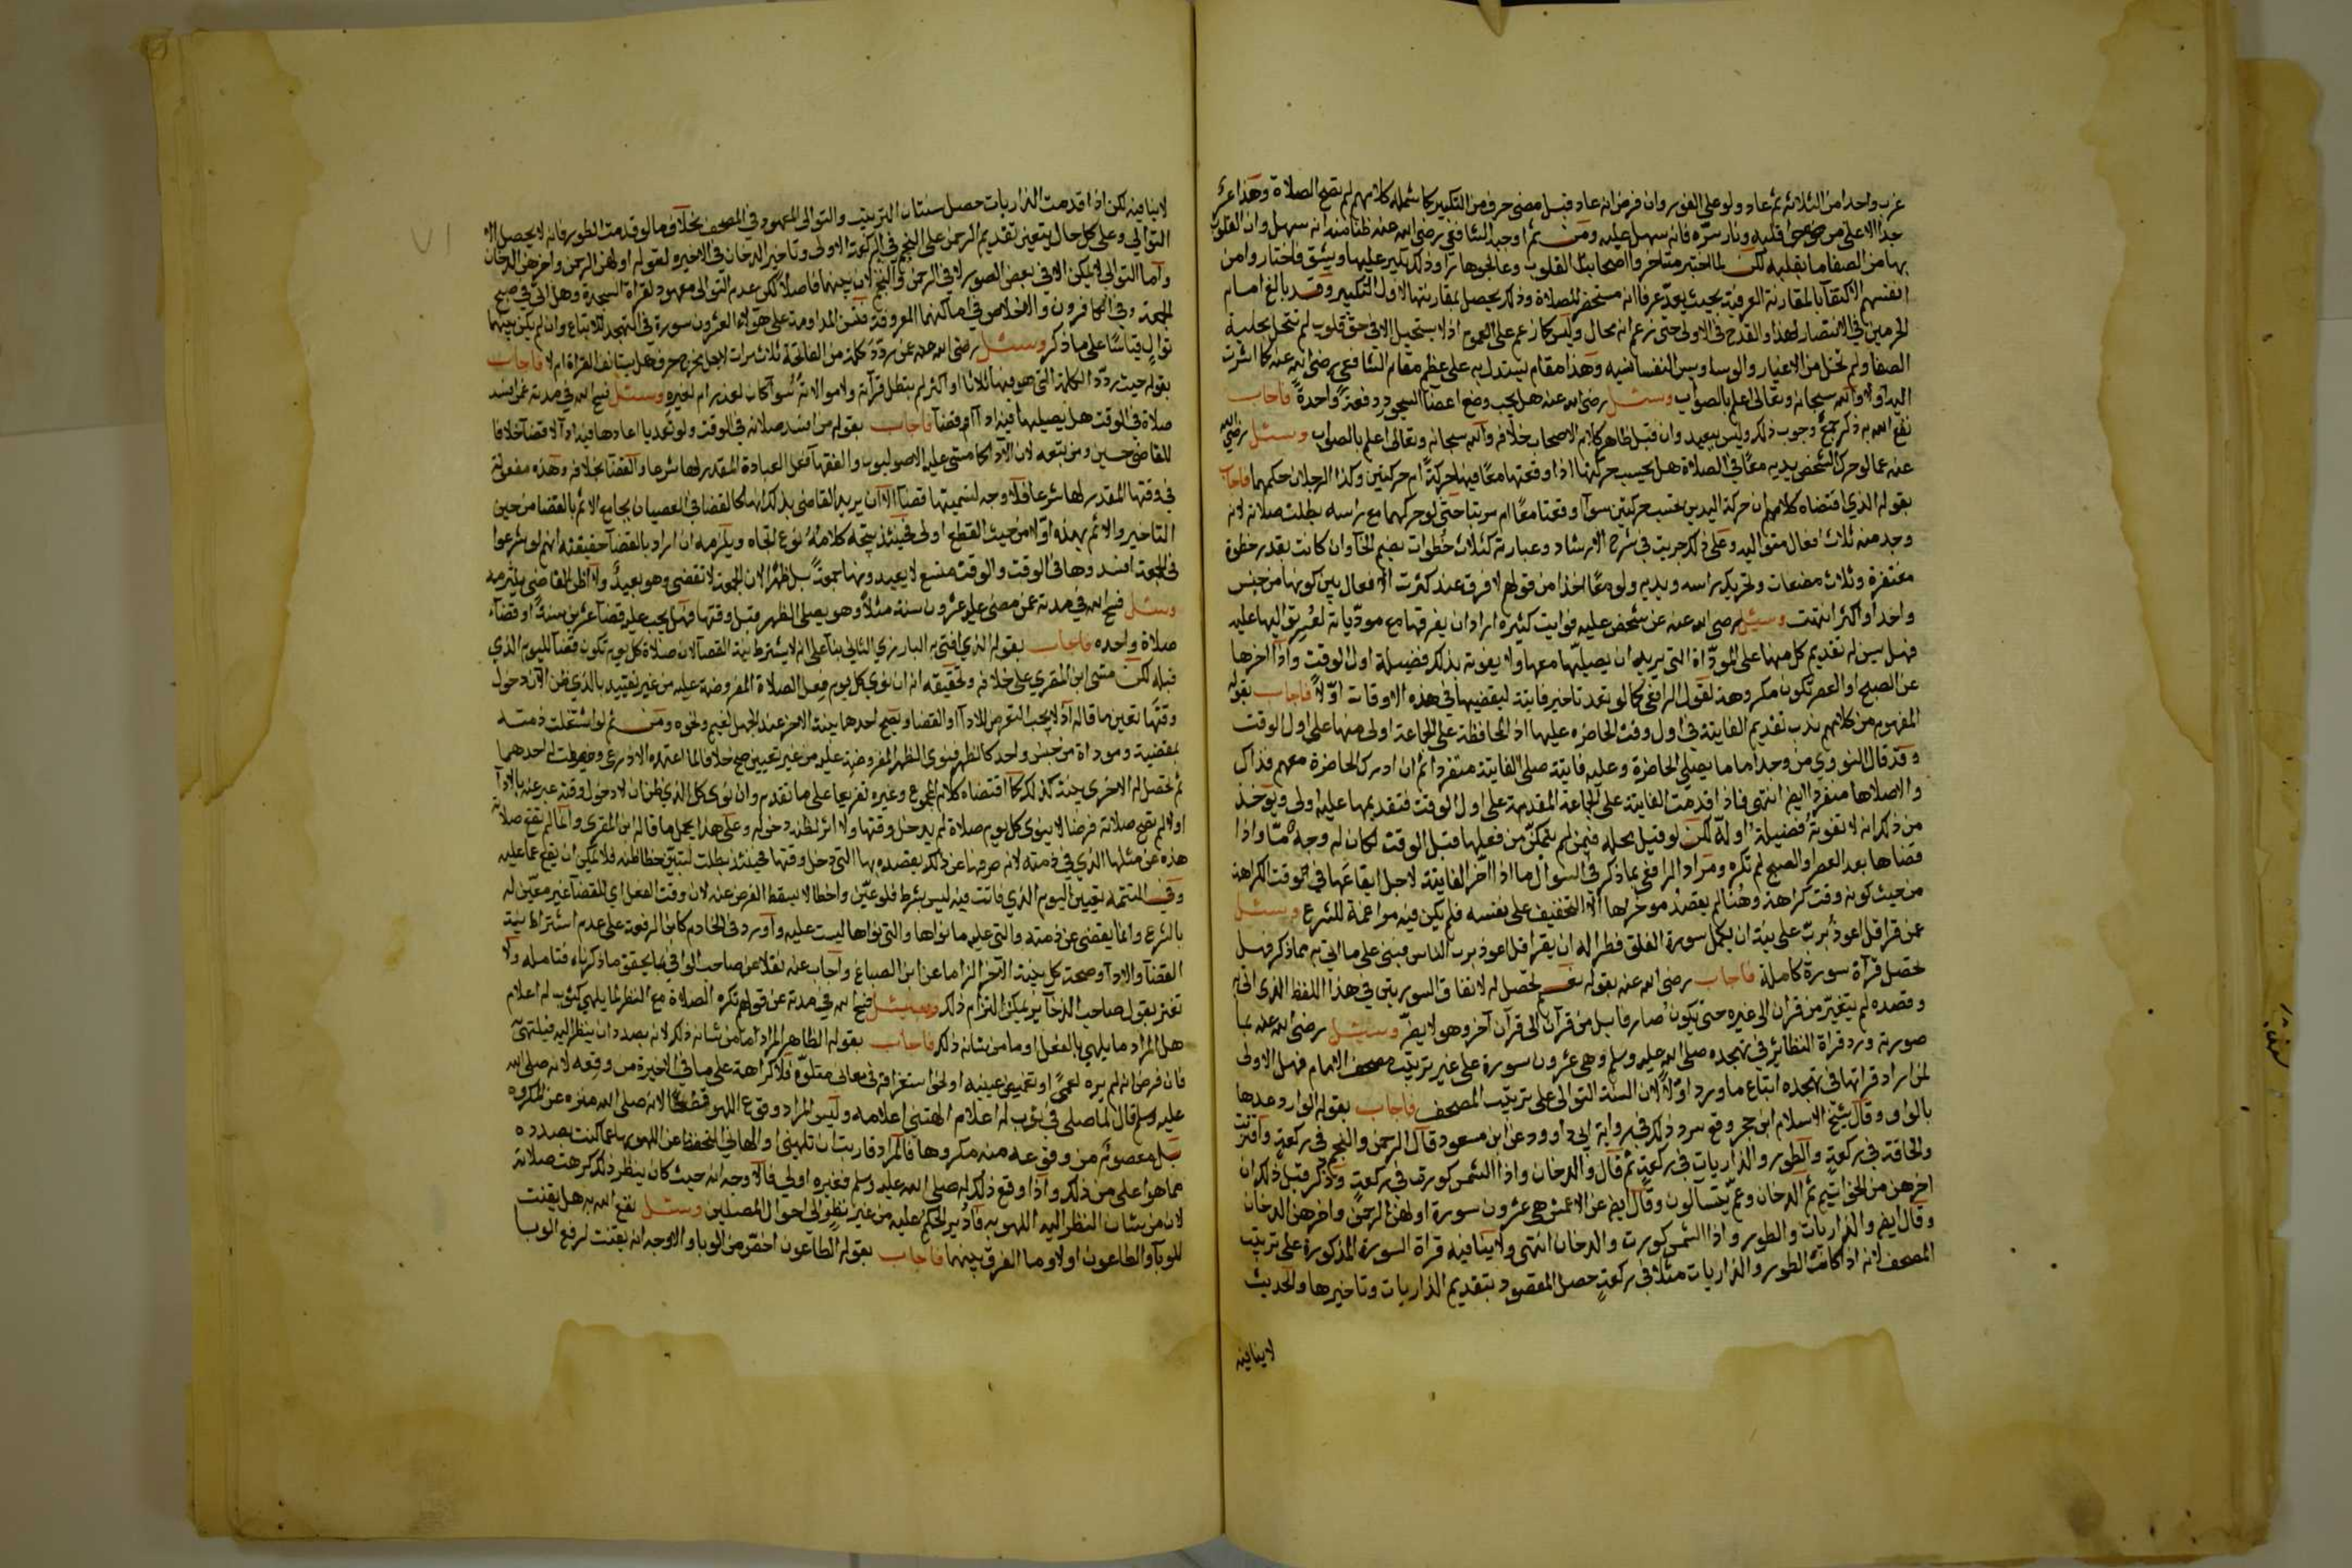 عزب واحدا من الثلاثة ثم عاد ولو على الفور وان فرض انه عاد قبل مضى حرف من التكبير كما شمله كلامهم لم تصح الصلاة وهذا عزيز
جدا الا على من قلبه ونار سره فانه سهل عليه ومن ثم اوجبه الشافعى رضى الله عنه ظنا منه انه سهل وان القلوب
بها من الصفا ما بقلبه لكن لما اختبر متاخروا اصحابنا القلوب وعالجوها راوا ذلك يكبر عليها ويشق فاختاروا من
انفسهم الاكتفا بالمقارنة العرفية بحيث يعد عرفا انه مستحضر للصلاة وذلك يحصل بمقارنتها لاول التكبير وقد بالغ امام
الحرمين في الانتصار لهذا والقدح في الاولى حتى زعم انه محال وليس كما زعم على العموم اذ لا يستحيل الا في حق قلوب لم تتحل بحلية
الصفا ولم تخل من الاغيار والوساوس النفسانيه وهذا مقام يستدل به على عظم مقام الشافعي رضى الله عنه كما اشرت
اليه اولا والله سبحانه وتعالى اعلم بالصواب وسئل رضى الله عنه هل يجب وضع اعضا السجود دفعة واحدة فاجاب
نفع الله به ذكر جمع وجوب ذلك وليس ببعيد وان قيل ظاهر كلام الاصحاب خلافه والله سبحانه وتعالى اعلم بالصواب وسئل رضى الله
عنه عما لو حرك الشخص يديه معًا في الصلاة هل يحسب حركتها اذا وقعتا معًا فيها حركة ام حركتين وكذا الرجلان حكمهما فاجاب
بقوله الذي اقتضاه كلامهم ان حركة اليدين تحسب حركتين سوآ وقعتا معًا ام مرتبا حتى لو حركهما مع راسه بطلت صلاته لانه
وجد منه ثلاث افعال متواليه وعلى ذلك جريت في شرح الارشاد وعبارته كثلاث خطوات بضم الخا وان كانت بقدر خطوة
مغتفرة وثلاث مضغات وتحريك راسه ويديه ولو معًا اخذا من قولهم لا فرق عند كثرت الافعال بين كونها من جنس
واحد او اكثر انتهت وسئل رضى الله عنه عن شخص عليه فوايت كثيرة اراد ان يفرقها مع مودّياته ليُسر توّاليها عليه
فهل يسن له تقديم كل منها على المودّاة التي يريد ان يصليها معها ولا يفوته بذلك فضيلة اول الوقت واذا اخرها
عن الصبح او العصر تكون مكروهة لقول الرافعي كما لو تعمد تاخير فايتة ليقضيها في هذه الاوقات اوّلاً فاجاب بقوله
المفهوم من كلامهم ندب تقديم الفايتة في اول وقت الحاضره عليها اذ المحافظة على الجماعة اولى منها على اول الوقت
وقد قال النووي من وجد اماما يصلي الحاضرة وعليه فايتة صلى الفايتة منفردا ثم ان ادرك الحاضرة معهم فذاك
والا صلاها منفردا ايضا انتهى فاذا قدمت الفايتة على الجماعة المقدمة على اول الوقت فتقديمها عليه اولى ويؤخذ
من ذلك انه لا تفوته فضيلة اوله لكن لو قيل بحله فيمن لم يتمكن من فعلها قبل الوقت لكان له وجه مّا واذا
قضاها بعد العصر او الصبح لم تكره ومراد الرافعي بما ذكر في السؤال ما اذا اخّر الفايتة لاجل ايقاعها في وقت الكراهة
من حيث كونه وقت كراهة وهنا لم يقصد موخرها الا التخفيف على نفسه فلم يكن فيه مراغمة للشرع وسئل
عمن قرا قل اعوذ برب على نية ان يكمل سورة الفلق فطرا له ان يقرا قل اعوذ برب الناس فبنى على ما اتى به مما ذكر فهل
تحصل قرآة سورة كاملة فاجاب رضى الله عنه بقوله نعم تحصل له لاتفاق السورتين في هذا اللفظ الذى اتى به
وقصده لم يتغيّر من قرآن الى غيره حتى يكون صارفا بل من قرآن الى قرآن آخر وهو لا يضر وسئل رضى الله عنه عما
صورته ورد قراة النظائر في تهجده صلى الله عليه وسلم وهى عشرون سورة على غير ترتيب مصحف الامام فهل الاولى
لمن اراد قراتها في تهجده اتباع ما ورد اوّلاً لان السنة التوالى على ترتيب المصحف فاجاب بقوله الوارد عدها
بالواو وقال شيخ الاسلام ابن حجر وقع سرد ذلك في رواية ابى داوود عن ابن مسعود قال الرحمن والنجم في ركعة واقتربت
والحاقة في ركعة والطور والذاريات في ركعة ثم قال والدخان واذا الشمس كورت في ركعة وذكر قبل ذلك ان
اخرهن من الحواميم ثم الدخان وعم يتسآلون وقال ايضا عن الاعمش هى عشرون سورة اولهن الرحمن واخرهن الدخان
وقال ايضا والذاريات والطور واذا الشمس كورت والدخان انتهى ولا ينافيه قراة السورة المذكورة على ترتيب
المصحف لانه اذا كانت الطور والذاريات مثلا في ركعة حصل المقصود بتقديم الذاريات وتاخيرها والحديث
لا ينافيه
لا ينافيه لكن اذا قدمت الذاريات حصل سنتان الترتيب والتوالى المعهود في المصحف بخلاف ما لو قدمت الطور فانه لا يحصل الا
التوالي وعلى كل حال يتعين تقديم الرحمن على النجم في الركعة الاولى وتاخير الدخان في الاخيره لقوله اولهن الرحمن واخرهن الدخان
واما التوالي لا يمكن الا في بعض الصور لا في الرحمن والنجم لان بينهما فاصلا لكن عدم التوالى معهود لقراة السجدة وهل اتى في صبح
الجمعة وفي الكافرون والاخلاص في اماكنهما المعروفة فتسن المداومة على هولاء العشرون سورة في التهجد للاتباع وان لم يكن بينهما
توالٍ قياسًا على ما ذكر وسئل رضى الله عنه عن ردّدَ كلمة من الفاتحة ثلاث مرات لاجل مخرج حرف هل يستانف القراة ام لا فاجاب
بقوله حيث ردّد الكلمة التي هو فيها ثلاثا او اكثر لم تبطل قرآته ولا موالاته سوآ كان لعذر ام لغيره وسئل فسح الله في مدته عمن افسد
صلاة في الوقت هل يصيليها فيه ادآ ام قضآ فاجاب بقوله من افسد صلاته في الوقت ولو تعديا اعادها فيه ادآ لا قضآ خلافا
للقاضى حسين ومن تبعه لان الادآ كما مشى عليه الاصوليون والفقهآ فعل العبادة المقدر لها شرعا والقضآ بخلافه وهذه مفعولة
في وقتها المقدر لها شرعا فلا وجه لتسميتها قضآ الا ان يريد القاضى بذلك انها كالقضا في العصيان بجامع الاثم بالقضا من حين
التاخير والاثم بهذه اوّلا من حيث القطع اولى فحينئذ يتجه كلامه نوع اتجاه ويلزمه ان اراد بالقضآ حقيقته انهم لو شرعوا
في الجمعة افسدوها في الوقت والوقت متسع لا يعيدونها جمعة بل ظهرا لان الجمعة لا تقضى وهو بعيد ولا اظن القاضي يلتزمه
وسئل فسح الله في مدته عمن مضى عليه عشرون سنة مثلاً وهو يصلى الظهر قبل وقتها فهل يجب عليه قضآ عشرين سنة او قضآء
صلاة واحده فاجاب بقوله الذي افتى به البارزي الثاني بنآ على انه لا يشترط نية القضآ لان صلاة كل يوم تكون قضآ لليوم الذي
قبله لكن مشى ابن المقري على خلافه وتحقيقه انه ان نوى كل يوم فعل الصلاة المفروضة عليه من غير تقييد بالذى ظن الآن دخول
وقتها تعين ما قاله اذ لا يجب التعرض للادآ او القضا ويصح احدهما بنية الاخر عند الجهل لغيم ونحوه ومن ثم لو اشتغلت ذمته
بمقضية وموداة من جنس واحد كالظهر فنوى الظهر المفروضة عليه من غير تعيين صح خلافا لما اعتمده الاذرعى وحصلت له احدهما
ثم تحصل له الاخرى بنية كذلك كما اقتضاه كلام المجموع وغيره تفريعا على ما تقدم وان نوى كل الذي ظن ان لا دخول وقته عبر عنه بالادآ
اولا لم يصح صلاته فرضا لا ينوى كل يوم صلاة لم يدخل وقتها ولا اثر لظنه دخوله وعلى هذا يحمل ما قاله ابن المقري وانما لم تقع صلاته
هذه عن مثلها الذي في ذمته لانه صرفها عن ذلك بقصده بها التى دخل وقتها فحينئذ بطلت لتبيّن خطا ظنه فلا يمكن ان يقع عما عليه
وفي التتمه تعيين اليوم الذي فاتت فيه ليس بشرط فلو عيّن واخطا لا يسقط الفرض عنه لان وقت الفعل اي للقضآ غير معيّن له
بالشرع وانما يقضى عن ذمته والتى عليه ما نواها والتى نواها ليست عليه وآورد في الخادم كابن الرفعة على عدم اشتراط نية
القضآ والادآ وصحة كل بنية الآخر الزاما عن ابن الصباغ وآجاب عنه نقلا عن صاحب الوافي بما يحقق ما ذكرناه فتامله ولا
تغتر بقول صاحب الذخآير يمكن التزام ذلك وسئل فسح الله في مدته عن قولهم تكره الصلاة مع النظر لما يلهي كثوب له اعلام
هل المراد ما يلهى بالفعل او ما من شانه ذلك فاجاب بقوله الظاهر المراد اما من شانه ذلك لانه بصدد ان ينظر اليه فيلتهى
فان فرض انه لم يره لعمى او تغميض عينيه او لنحو استغراقه في معانى متلوّه فلا كراهة على ما في الاخيرة من وقعه لانه صلى الله
عليه وسلم قال لما صلى في ثوب له اعلام الهتنى اعلامه وليس المراد وقوع اللهو قطعًا لانه صلى الله منزه عن المكروه
بل معصوم من وقوعه منه مكروها فالمراد قاربت ان تلهينى او الهانى التحفظ عن اللهو بها عما كنت بصدده
مما هو اعلى من ذلك واذا وقع ذلك له صلى الله عليه وسلم فغيره اولى فالاوجه انه حيث كان ينظر ذلك كرهت صلاته
لان من شان النظر اليه اللهو به فادير الحكم عليه من غير نظر الى احوال المصلين وسئل نفع الله به هل يقنت
للوبآ والطاعون اولا وما الفرق بينهما فاجاب بقوله الطاعون اخصّ من الوبا والاوجه انه يقنت لرفع الوبا